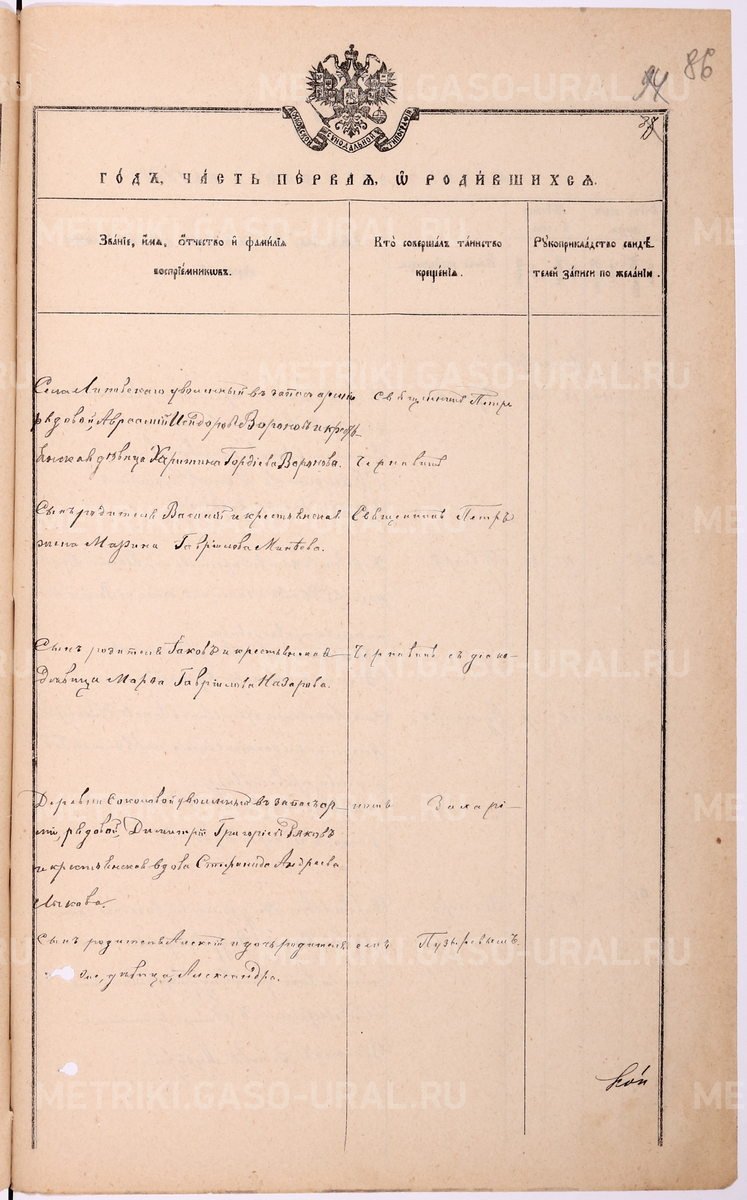 94 86
МОСКОВСКОЙ СѴНОДАЛЬНОЙ ТИПОГРАФІИ
ГОДЪ, ЧАСТЬ ПЕРВАЯ, Ѡ РОДИВШИХСЯ.
Званіе, имя, отчество и фамилія воспріемниковъ.
Кто совершалъ таинство крещенія.
Рукоприкладство свидѣтелей записи по желанію.
Села уволенный въ запасъ арміи
рядовой, Авраамій Исидоровъ Вороновъ и кресть
янская дѣвица Харитина Гордіева Воронова.
Священникъ Петръ
Чернавинъ
Сынъ родителя Василій и крестьянская
жена Марина Гавріилова Минѣева.
Священникъ Петръ
Сынъ родителя Іаковъ и крестьянская
Дѣвица Марѳа Гавріилова Назарова.
Чернавинъ съ діако-
Деревни Соколовой уволенный въ запасъ ар-
міи, рядовой, Димитрій Григорьевъ
и крестьянская вдова Стефанида Андреева
Лыкова.
номъ Захарі-
Сынъ родителя Алексій и дочь родителя
же, дѣвица, Александра.
емъ Пузыревымъ.
METRIKI.GASO-URAL.RU